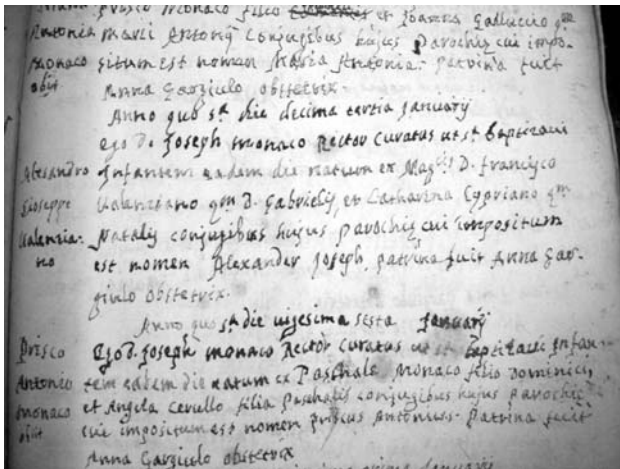 Prisco Monaco filio et Joanna Galluccio qm
Antonia Marci Antonij Conjugibus hujus Parochię cui impo-
Monaco situm est nomen Maria Antonia. Patrina fuit
obijt Anna Garziulo obstetrix.
Anno quo sa. die decima tertia January
ego D. Joseph Monaco Rector Curatus ut sa. baptizavi
Alesandro Infantem eadem die natum ex Magcis D. Francisco
Gioseppe Valenziano qm D. Gabrielis, et Catharina Cypriano qm
Valenzia- Natalis conjugibus hujus Parochię cui impositum
no est nomen Alexander Joseph, patrina fuit Anna Gar-
giulo obstetrix.
Anno quo sa. die vigesima sesta January
Prisco Ego D. Joseph Monaco Rector Curatus ut sa. baptizavi Infan-
Antonio tem eadem die natum ex Paschale Monaco filio Dominici,
Monaco et Angela Cerullo filia Paschalis conjugibus hujus parochię
obijt cui impositum est nomen Priscus Antonius. Patrina fuit
Anna Garziulo obstetrix